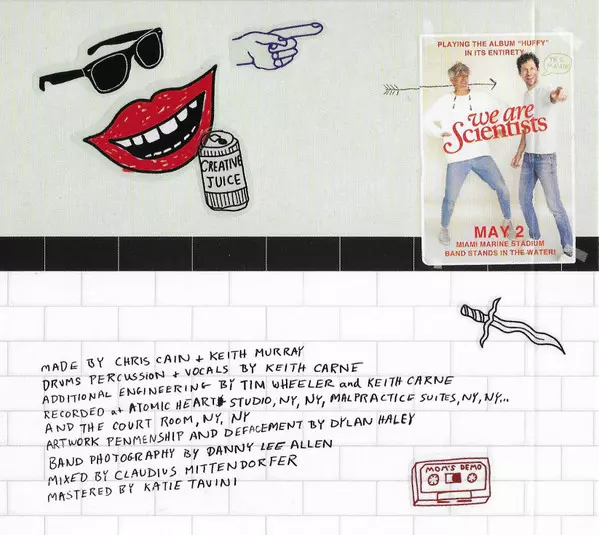 PLAYING THE ALBUM "HUFFY"
IN ITS ENTIRETY
we are
Scientists
MAY 2
MIAMI MARINE STADIUM
BAND STANDS IN THE WATER!
CREATIVE
JUICE
MADE BY CHRIS CAIN + KEITH MURRAY
DRUMS PERCUSSION + VOCALS BY KEITH CARNE
ADDITIONAL ENGINEERING BY TIM WHEELER and KEITH CARNE
RECORDED at ATOMIC HEART STUDIO, NY, NY, MALPRACTICE SUITES, NY, NY...
AND THE COURT ROOM, NY, NY
ARTWORK PENMENSHIP AND DEFACEMENT BY DYLAN HALEY
BAND PHOTOGRAPHY BY DANNY LEE ALLEN
MIXED BY CLAUDIUS MITTENDORFER
MASTERED BY KATIE TAVINI
MOM'S DEMO